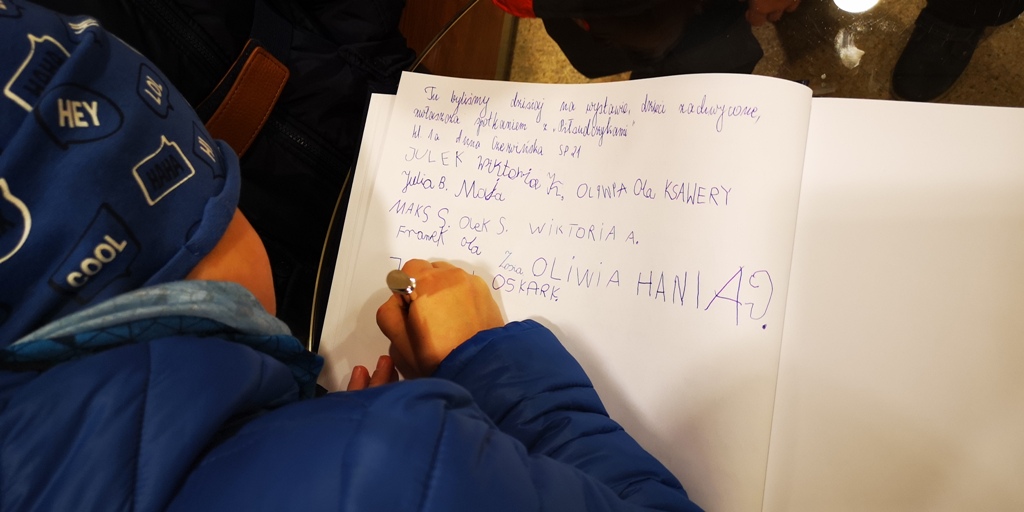 HAHA
HEY
LOL
HAHA
HI
COOL
Tu byliśmy dzisiaj na wystawie, dzieci zachwycone,
zwłaszcza spotkaniem z
kl 1a Anna SP 21
JULEK Wiktoria K, OLIWIA Ola KSAWERY
Julia B. Maja
MAKS S. Olek S. WIKTORIA A.
Franek Ola Zosia OLIWIA HANIA
OSKAR K.